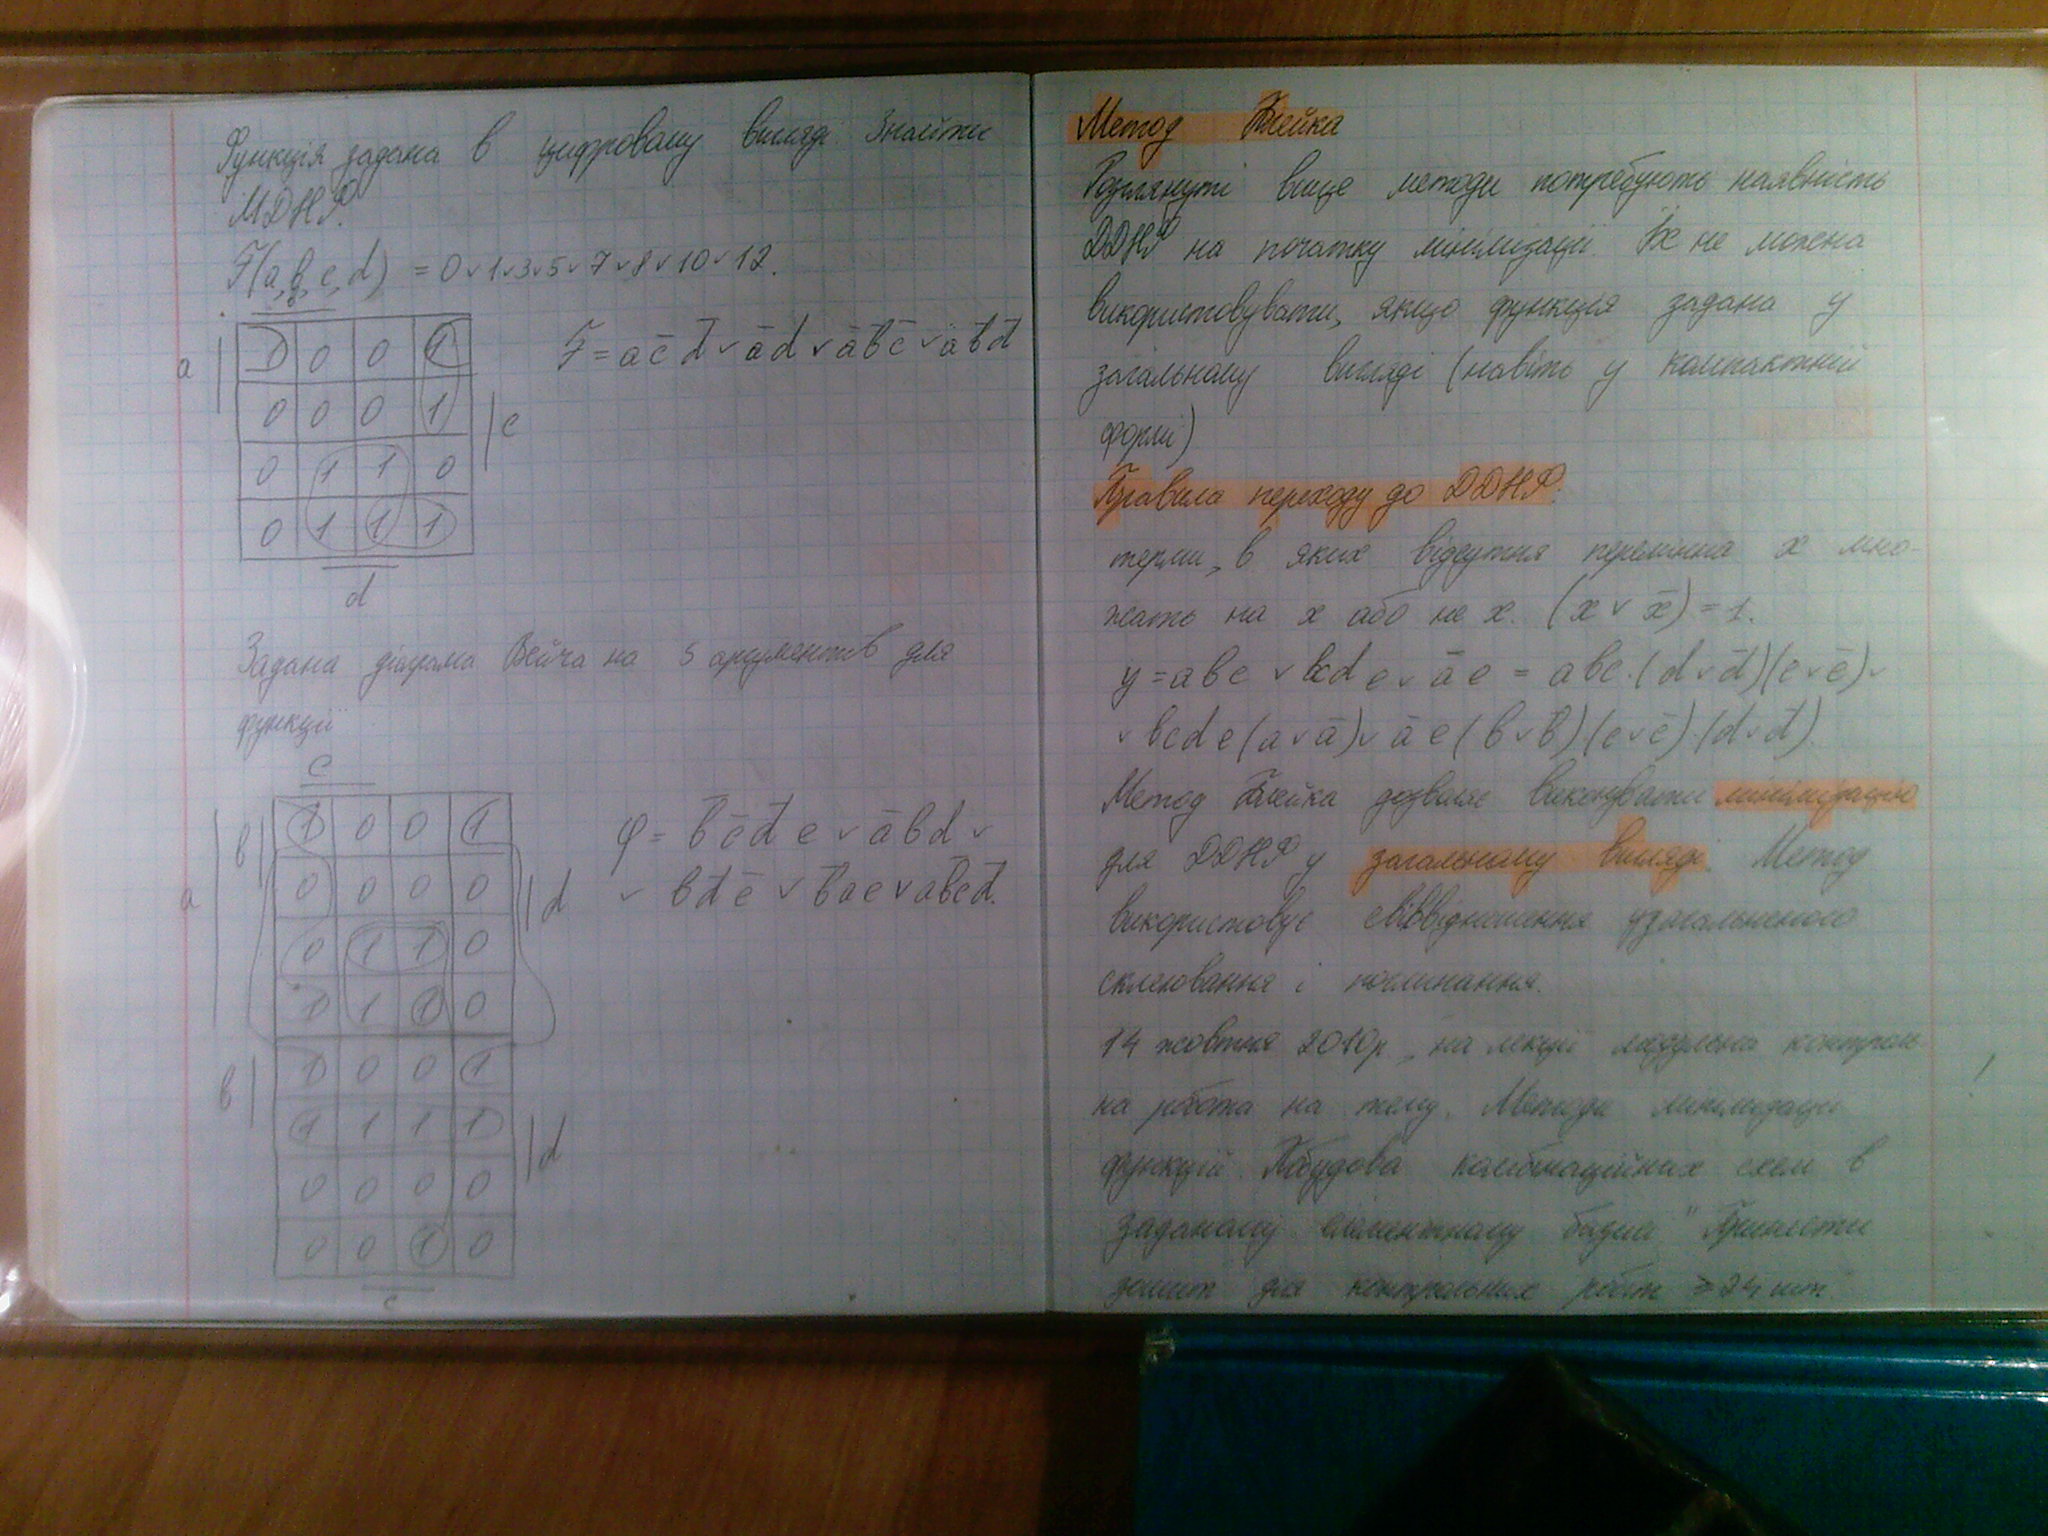 Функція задана в цифровому вигляді. Знайти
МДНФ.
F(a,b,c,d) = 0∨1∨3∨5∨7∨8∨10∨12.
b
a
1 0 0 1
0 0 0 1
c
0 1 1 0
0 1 1 1
d
F = a c̄ d̄ ∨ ā d ∨ ā b̄ c̄ ∨ a b̄ d̄
Задана діаграма Вейча на 5 аргументів для
функції
c
a
b
1 0 0 1
0 0 0 0
d
0 1 1 0
1 1 1 0
b
1 0 0 1
1 1 1 1
d
0 0 0 0
0 0 1 0
e
φ = b̄ c̄ d̄ e ∨ ā b d ∨
∨ b d̄ ē ∨ b̄ a e ∨ a b̄ c d̄.
Метод Блейка
Розглянуті вище методи потребують наявність
ДДНФ на початку мінімізації. Їх не можна
використовувати, якщо функція задана у
загальному вигляді (навіть у компактній
формі)
Правила переходу до ДДНФ:
терми, в яких відсутня перемінна x мно-
жать на x або не x. (x ∨ x̄) = 1.
y = abc ∨ bcd e ∨ ā e = abc·(d ∨ d̄)(e ∨ ē) ∨
∨ bcde(a ∨ ā) ∨ ā e (b ∨ b̄)·(c ∨ c̄)·(d ∨ d̄)
Метод Блейка дозволяє виконувати мінімізацію
для ДДНФ у загальному вигляді. Метод
використовує співвідношення узагальненого
склеювання і поглинання.
14 жовтня 2010р., на лекції модульна контроль
на робота на тему. Методи мінімізації
функцій. Побудова комбінаційних схем в
заданому елементному базисі" Принести
зошит для контрольних робіт ≥ 24 шт.
!